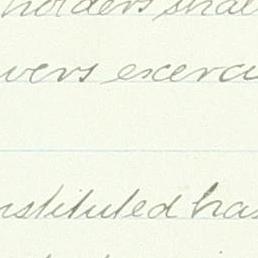 holders shall
wers exercis
nstituted has